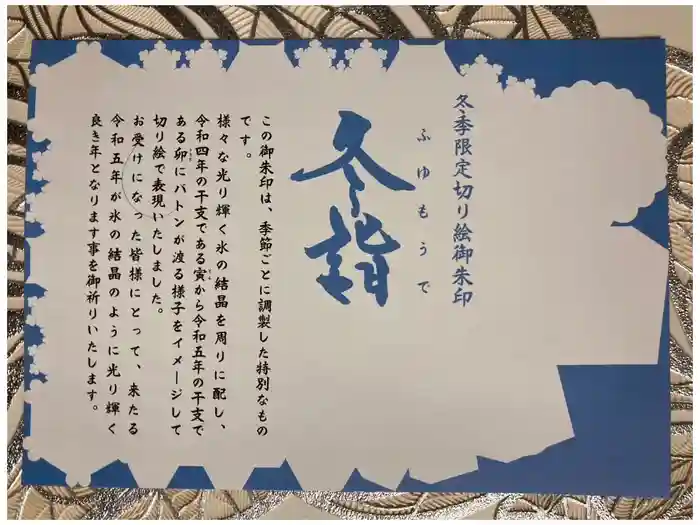 冬季限定切り絵御朱印
ふゆもうで
冬詣
この御朱印は、季節ごとに調製した特別なもの
です。
様々な光り輝く氷の結晶を周りに配し、
令和四年の干支である寅から令和五年の干支で
ある卯にバトンが渡る様子をイメージして
切り絵で表現いたしました。
お受けになった皆様にとって、来たる
令和五年が氷の結晶のように光り輝く
良き年となります事を御祈りいたします。